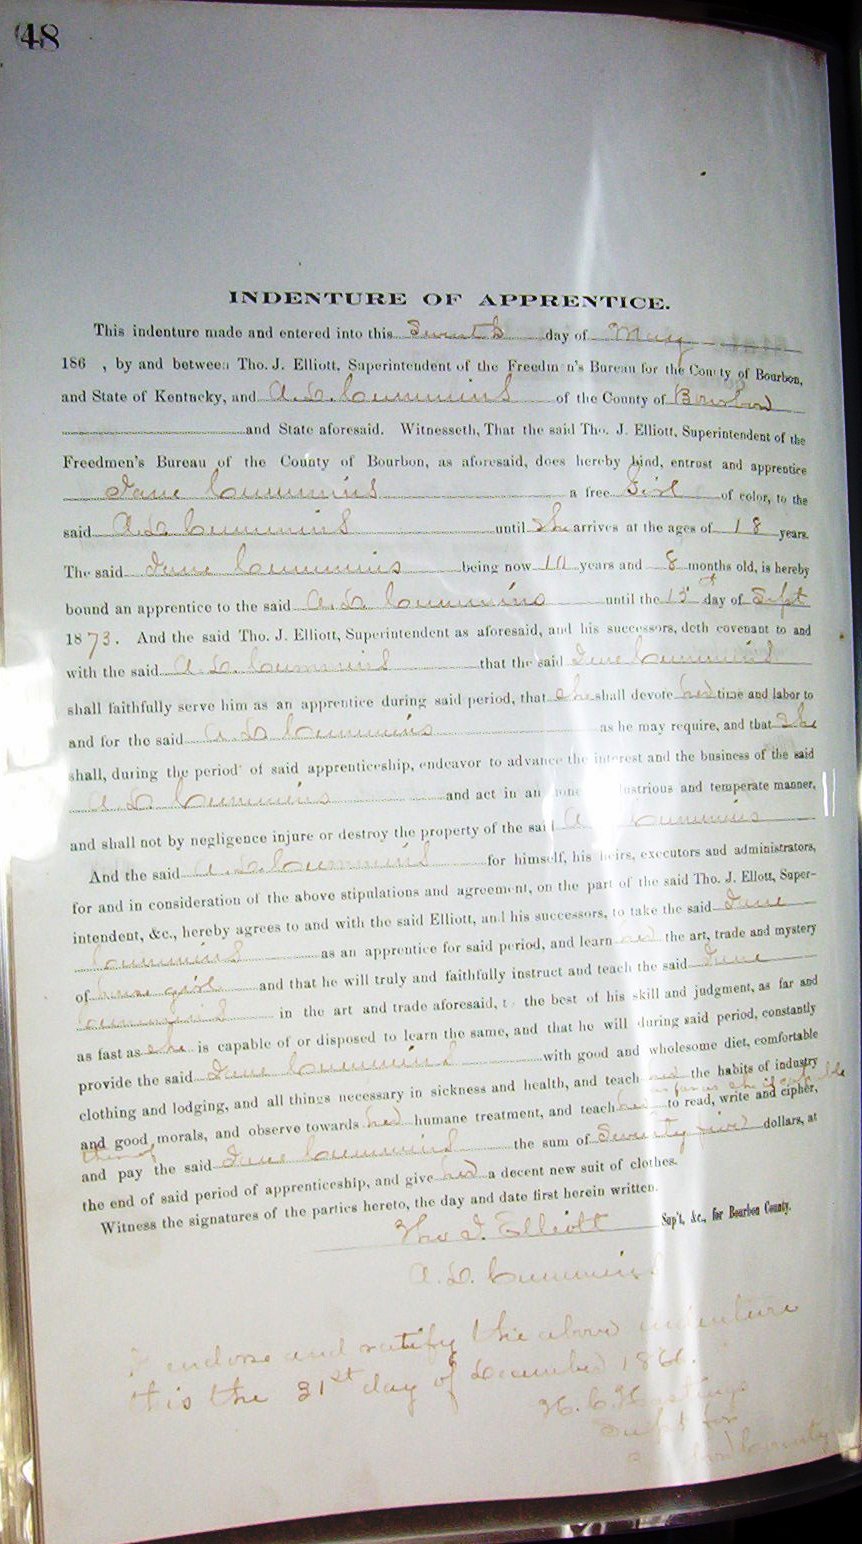 48
INDENTURE OF APPRENTICE.
This indenture made and entered into this Seventh day of May
186 , by and between Tho. J. Elliott, Superintendent of the Freedmen's Bureau for the County of Bourbon,
and State of Kentucky, and A. L. Cummins of the County of Bourbon
and State aforesaid. Witnesseth, That the said Tho. J. Elliott, Superintendent of the
Freedmen's Bureau of the County of Bourbon, as aforesaid, does hereby bind, entrust and apprentice
Jane Cummins a free Girl of color, to the
said A. L. Cummins until She arrives at the ages of 18 years.
The said Jane Cummins being now 10 years and 8 months old, is hereby
bound an apprentice to the said A. L. Cummins until the 15th day of Sept
1873. And the said Tho. J. Elliott, Superintendent as aforesaid, and his successors, doth covenant to and
with the said A. L. Cummins that the said Jane Cummins
shall faithfully serve him as an apprentice during said period, that she shall devote her time and labor to
and for the said A. L. Cummins as he may require, and that she
shall, during the period of said apprenticeship, endeavor to advance the interest and the business of the said
A. L. Cummins and act in an industrious and temperate manner,
and shall not by negligence injure or destroy the property of the said A Cummins
And the said A. L. Cummins for himself, his heirs, executors and administrators,
for and in consideration of the above stipulations and agreement, on the part of the said Tho. J. Ellott, Super-
intendent, &c., hereby agrees to and with the said Elliott, and his successors, to take the said Jane
Cummins as an apprentice for said period, and learn her the art, trade and mystery
of house girl and that he will truly and faithfully instruct and teach the said Jane
Cummins in the art and trade aforesaid, to the best of his skill and judgment, as far and
as fast as she is capable of or disposed to learn the same, and that he will during said period, constantly
provide the said Jane Cummins with good and wholesome diet, comfortable
clothing and lodging, and all things necessary in sickness and health, and teach her the habits of industry
and good morals, and observe towards her humane treatment, and teach her as far as she is capable
thereof to read, write and cipher,
and pay the said Jane Cummins the sum of Seventy five dollars, at
the end of said period of apprenticeship, and give her a decent new suit of clothes.
Witness the signatures of the parties hereto, the day and date first herein written.
Tho J. Elliott Sup't, &c., for Bourbon County.
A. L. Cummins
I endorse and ratify the above indenture
this the 31st day of December 1866.
H. C. Hastings
Supt for
Bourbon County